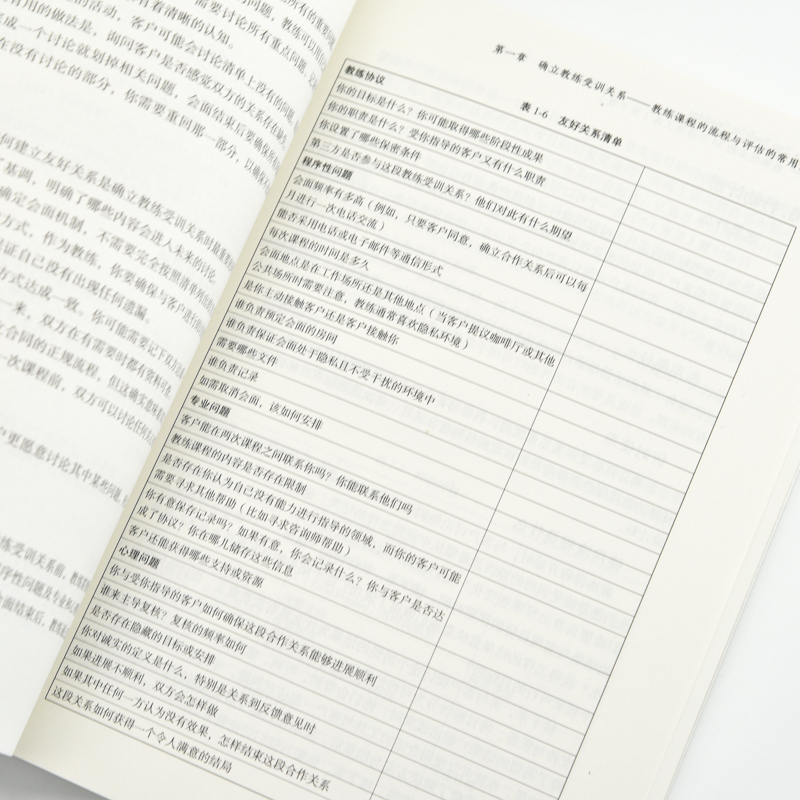 所有的重要
有着清晰的认知。
需要讨论所有重点问题，
的活动，客户可能会讨论清单上没有的问题，
有用的做法是，询问客户是否感觉双方的关系有
完成一个讨论就划掉相关问题，会面结束后要确保
在没有讨论的部分，你需要重回那一部分，以确保
何建立友好关系是确立教练受训关系时最重要
了基调，明确了哪些内容会进入未来的讨论。
确定会面机制，不需要完全按照清单
方式，作为教练，你要确保与客户进行
证自己没有出现任何遗漏。
方式达成一致。你可能需要记下双方
一来，双方在有需要时都有资料可
合同的正规流程，但这确实意味
一次课程前，双方可以讨论任何
户更愿意讨论其中某些问题
练受训关系前，教练
序性问题及专业
会面结束后，教练
第一章 确立教练受训关系——教练课程的流程与评估的常用
表 1-6 友好关系清单
教练协议
你的目标是什么？你可能取得哪些阶段性成果
你的职责是什么？受你指导的客户又有什么职责
你设置了哪些保密条件
第三方是否参与这段教练受训关系？他们对此有什么期望
程序性问题
会面频率有多高（例如，只要客户同意，确立合作关系后可以每
月进行一次电话交流）
能否采用电话或电子邮件等通信形式
每次课程的时间是多久
会面地点是在工作场所还是其他地点（当客户提议咖啡厅或其他
公共场所时需要注意，教练通常喜欢隐私环境）
是你主动接触客户还是客户接触你
谁负责预定会面的房间
谁负责保证会面处于隐私且不受干扰的环境中
需要哪些文件
谁负责记录
如需取消会面，该如何安排
专业问题
客户能在两次课程之间联系你吗？你能联系他们吗
教练课程的内容是否存在限制
是否存在你认为自己没有能力进行指导的领域，而你的客户可能
需要寻求其他帮助（比如寻求咨询师帮助）
你有意保存记录吗？如果有意，你会记录什么？你与客户是否达
成了协议？你在哪儿储存这些信息
客户还能获得哪些支持或资源
心理问题
你与受你指导的客户如何确保这段合作关系能够进展顺利
谁来主导复核？复核的频率如何
是否存在隐藏的目标或安排
你对诚实的定义是什么，特别是关系到反馈意见时
如果进展不顺利，双方会怎样做
如果其中任何一方认为没有效果，怎样结束这段合作关系
这段关系如何获得一个令人满意的结局